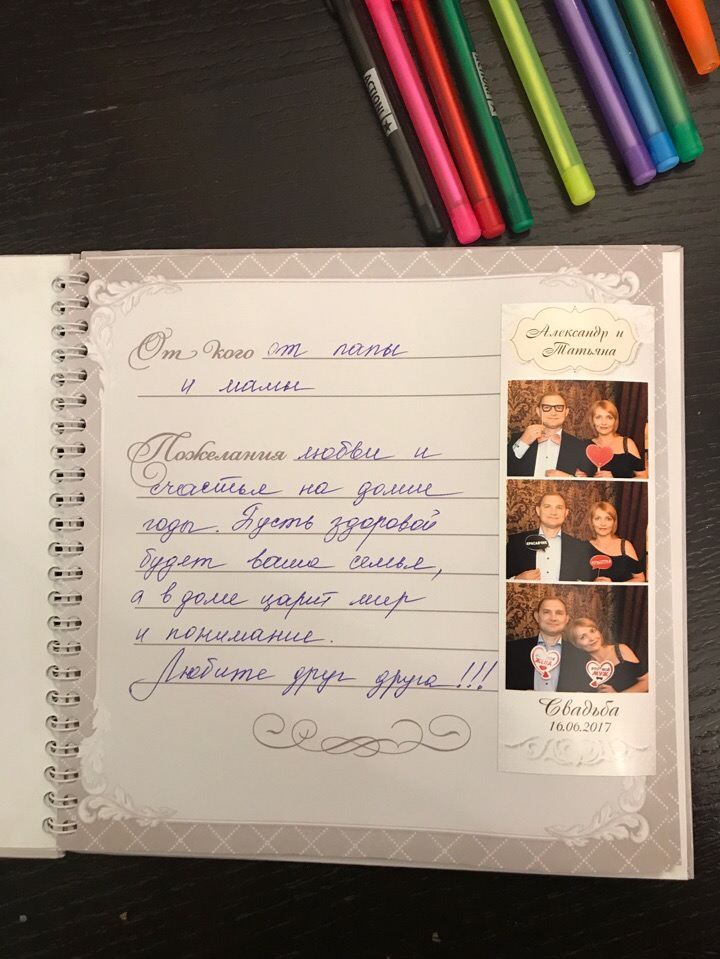 ACTION!
ACTION!
От кого от папы
и мамы
Пожелания любви и
счастья на долгие
годы. Пусть здоровой
будет ваша семья,
а в доме царит мир
и понимание.
Любите друг друга!!!
Александр и
Татьяна
КРАСАВЧИК
ЖЕНА
МУЖ
Свадьба
16.06.2017